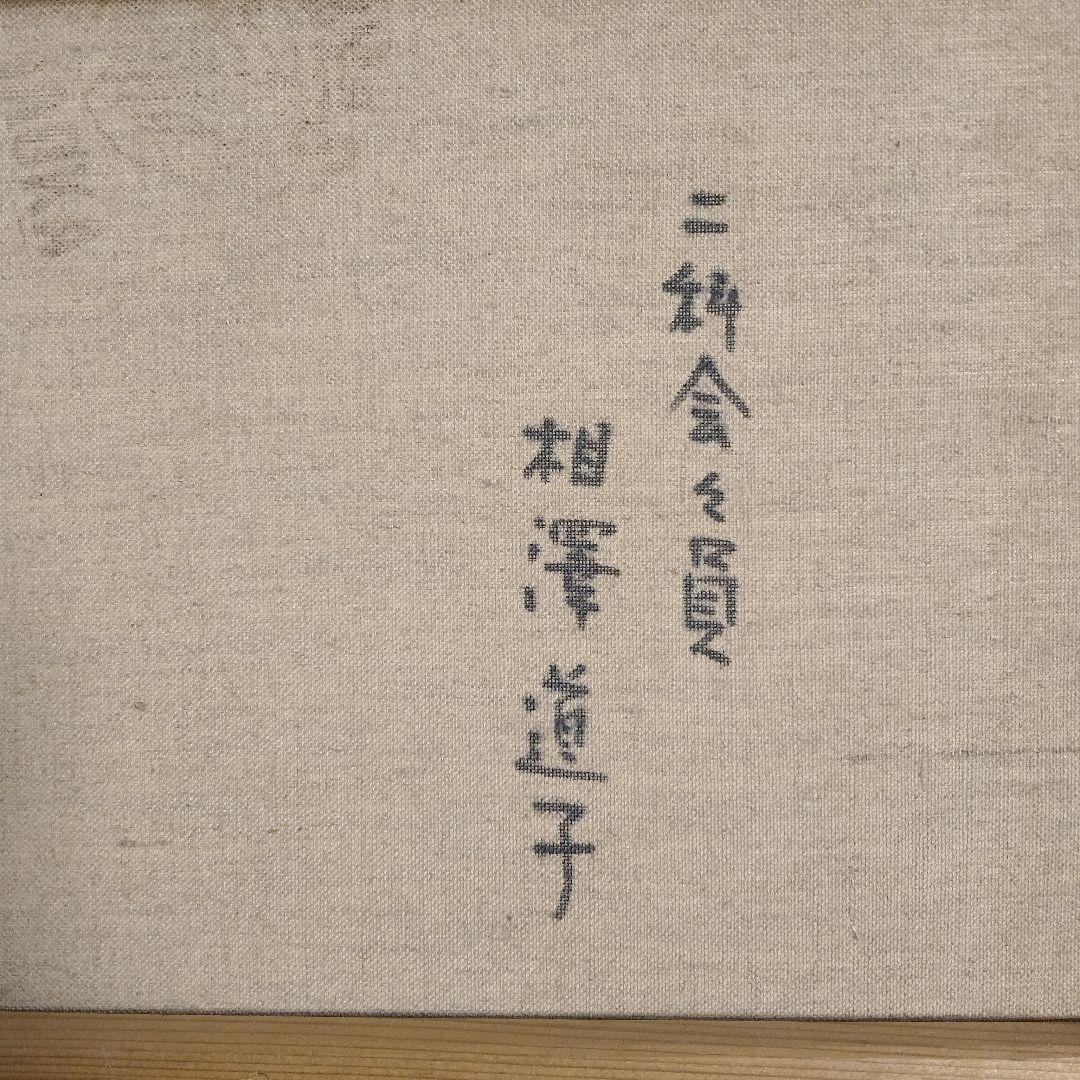 二科会々員
相澤道子